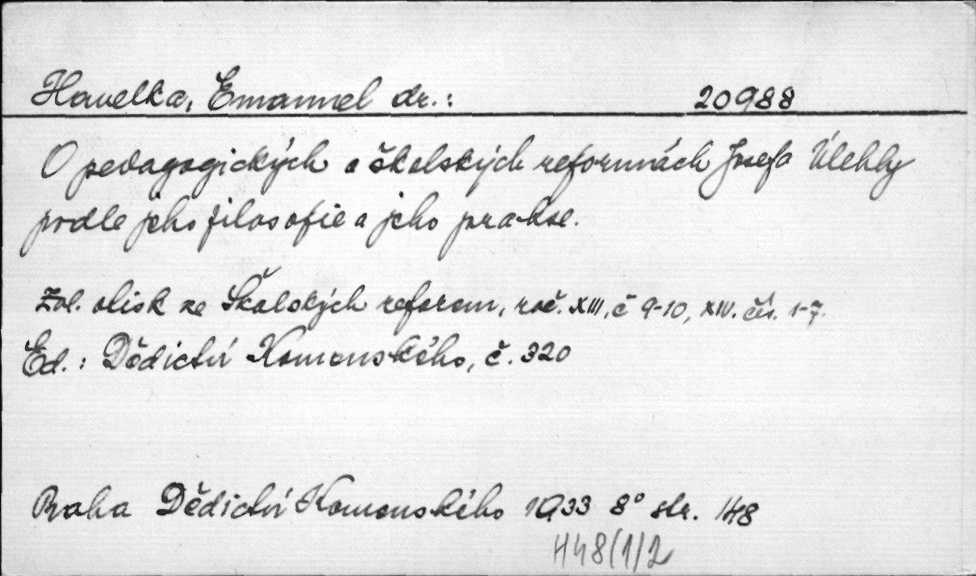 Havelka, Emanuel dr.: 20988
O pedagogických a školských reformách Josefa Úlehly
podle jeho filosofie a jeho prakse.
Zvl. otisk ze Školských reforem, roč. XIII, č 9-10, XIV. čís. 1-7.
Ed.: Dědictví Komenského, č. 320
Praha Dědictví Komenského 1933 8° str. 148
H48(1)2